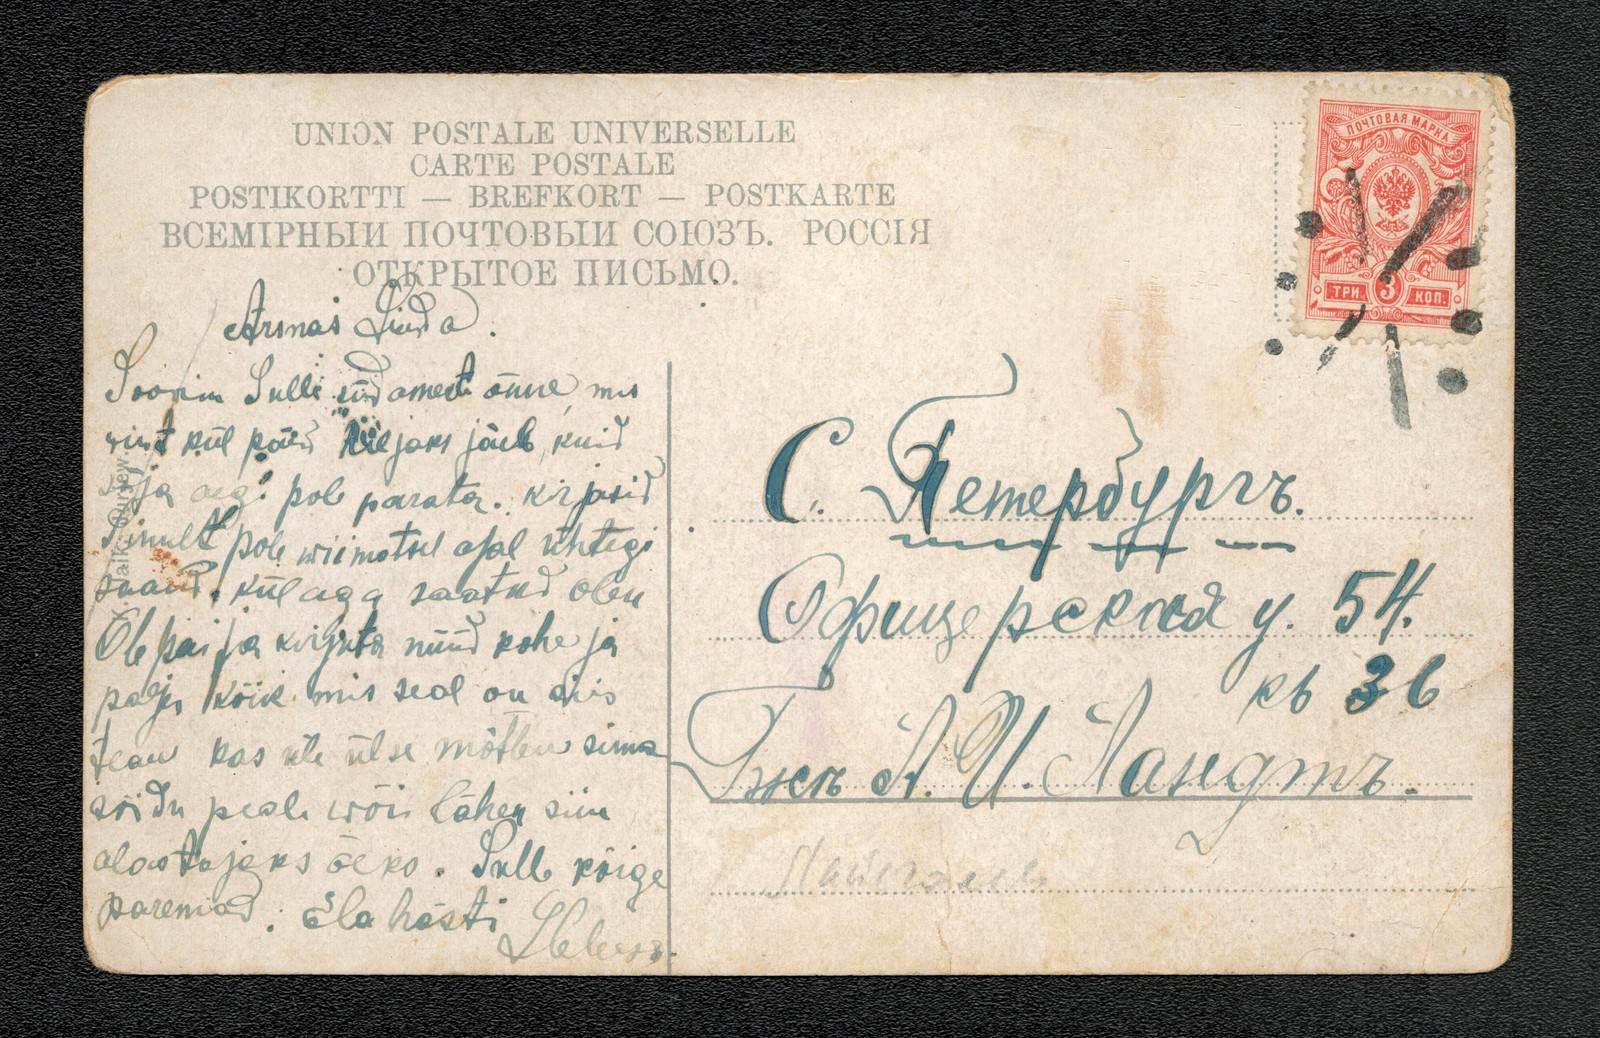 UNION POSTALE UNIVERSELLE
CARTE POSTALE
POSTIKORTTI — BREFKORT — POSTKARTE
ВСЕМІРНЫЙ ПОЧТОВЫЙ СОЮЗЪ. РОССІЯ
ОТКРЫТОЕ ПИСЬМО.
ПОЧТОВАЯ МАРКА
ТРИ 3 КОП.
Armas Linda.
Soovin Sulle südamest õnne, mis
küll jääb, kuid
ja aega pole parata. kirjasid
Sinult pole wiimatsel ajal ühtegi
saand. küll aga saatnud olen
Ole pai ja kirjuta nüüd kohe ja
palju kõik mis seal on siis
tean kas üle üldse mõtlen sinna
sõidu peale wõi lähen siin
alastajaks
Sulle kõige
paremad. Ela hästi
С. Петербургъ.
Офицерская у. 54.
кв 36
Л. И. Ландтъ.